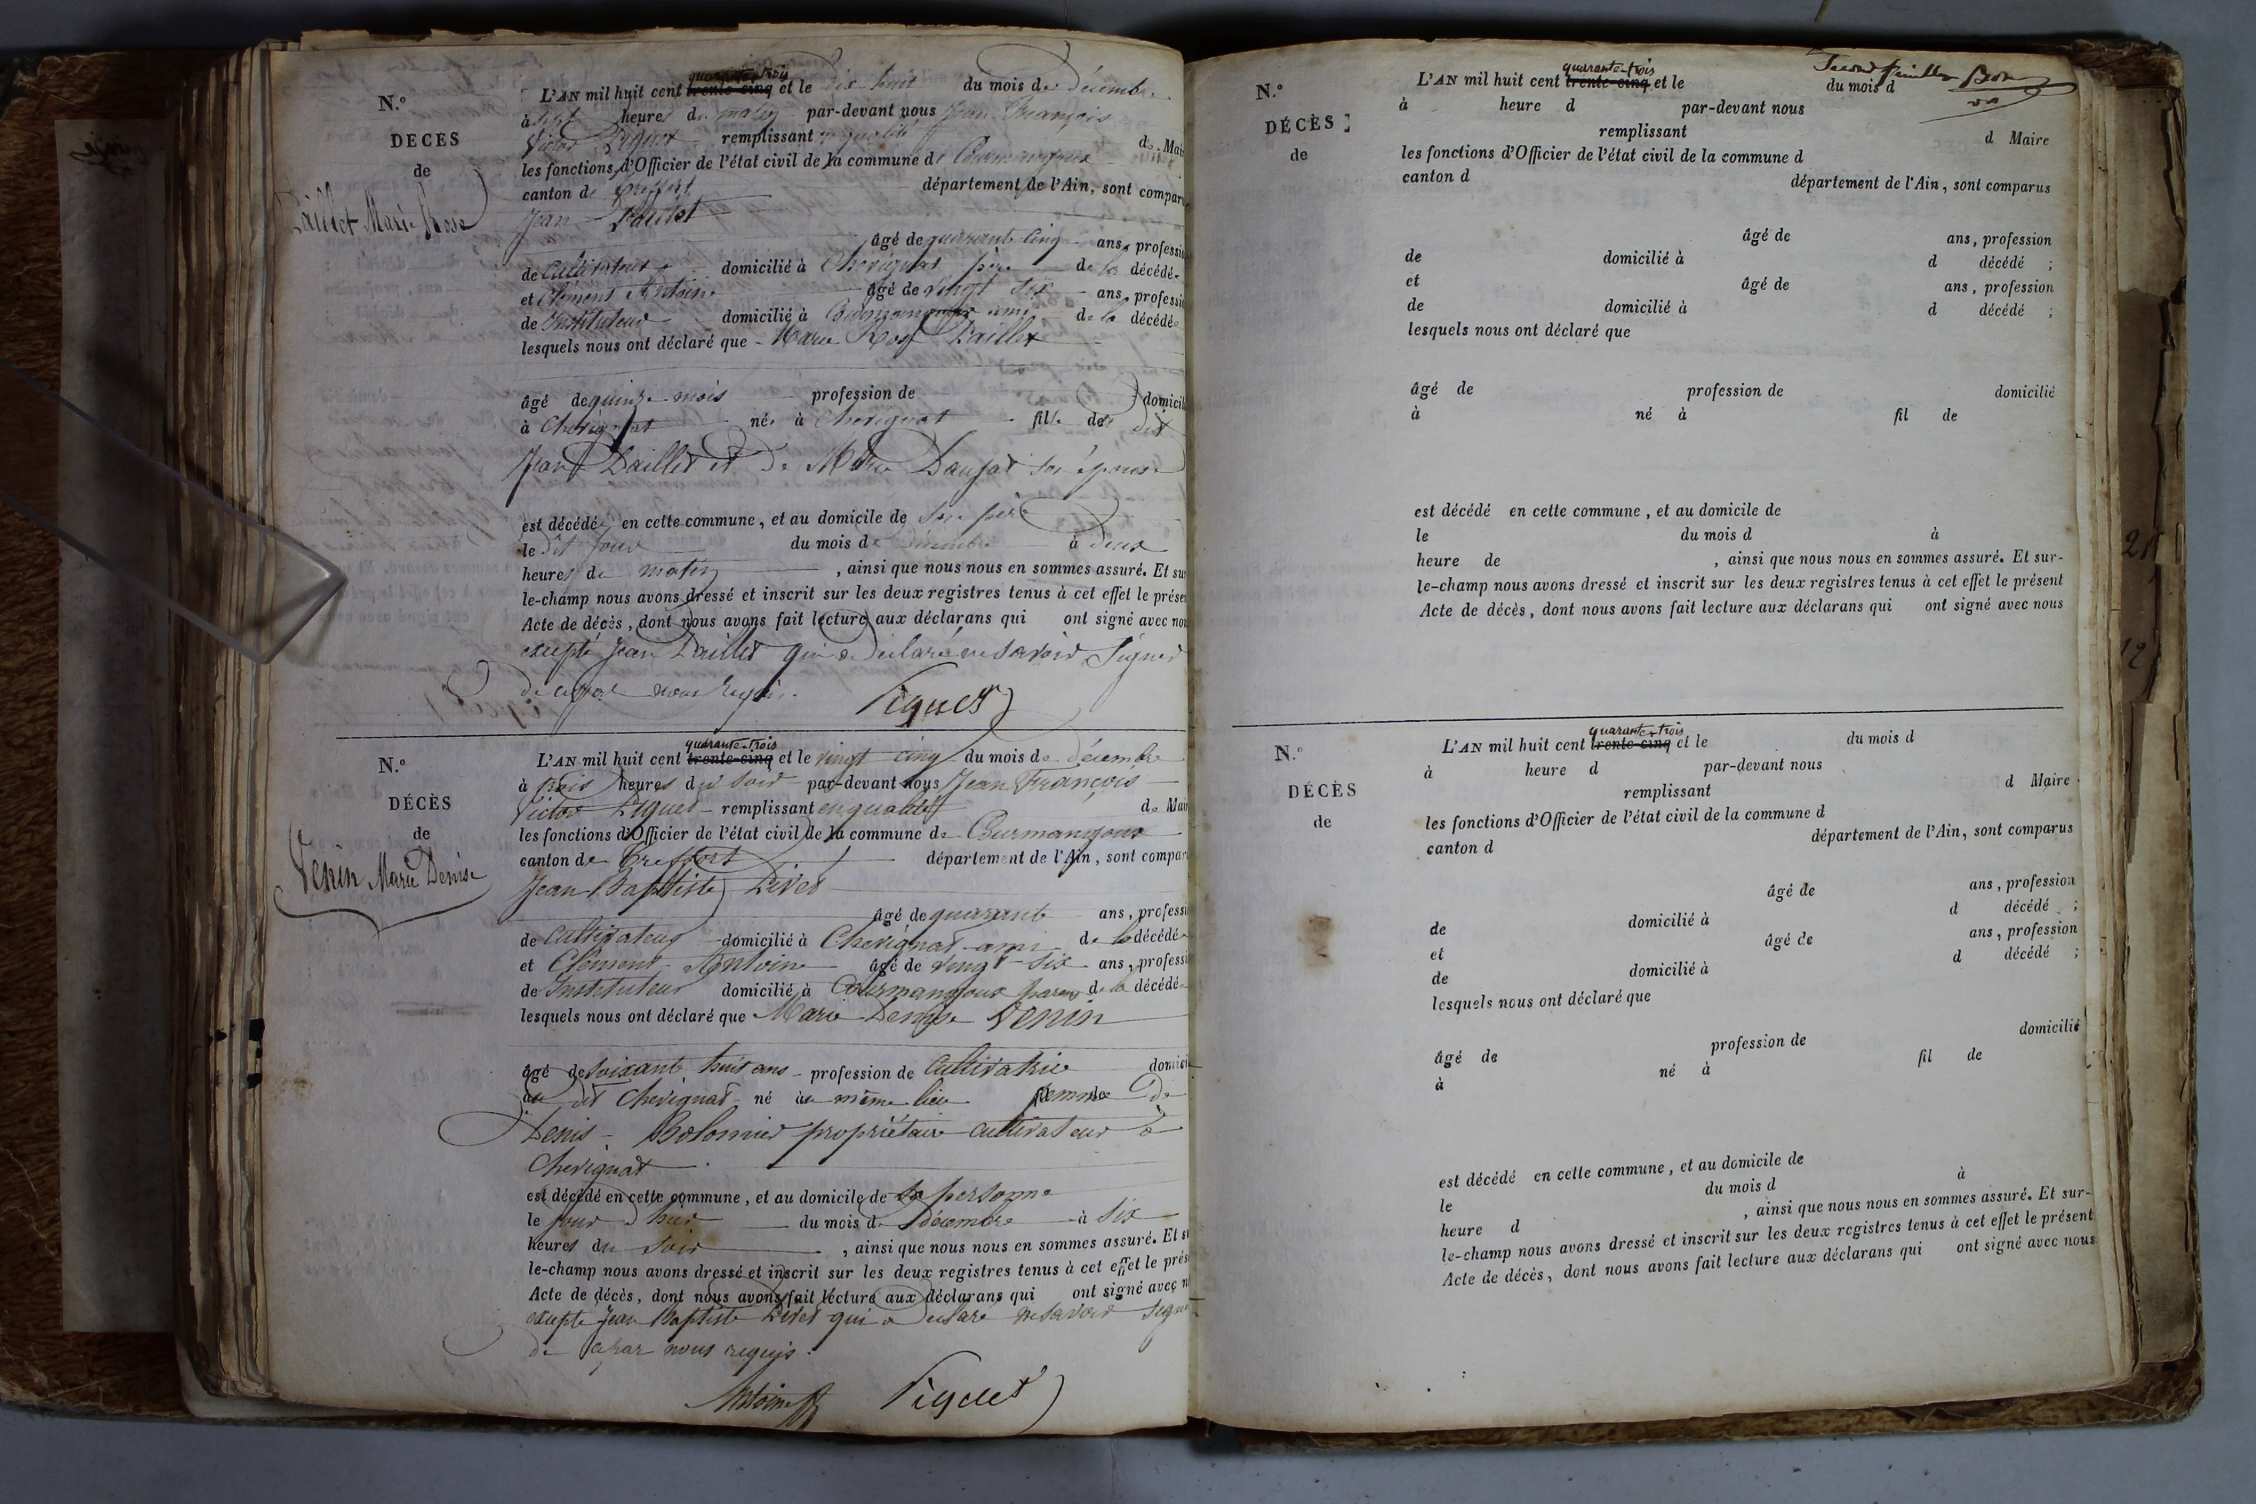 N.º
DECES
de
Paillet Marie Rose
L'AN mil huit cent quarante-trois trente-cinq et le dix huit du mois de décembre
à sept heures du matin par-devant nous Jean François
Victor Piquet remplissant en qualité de Mai
les fonctions d'Officier de l'état civil de la commune de Courmangoux
canton de Treffort département de l'Ain, sont compar
Jean Paillet
âgé de quarante cinq ans, professi
de Cultivateur domicilié à Chevignat père de la décédée
et Clément Antoine âgé de vingt six ans, professi
de Instituteur domicilié à Courmangoux ami de la décédée
lesquels nous ont déclaré que Marie Rose Paillet
âgé de quinze mois profession de domicil
à Chevignat née à Chevignat fille de dit
Jean Paillet et de Marie son épouse
est décédée en cette commune, et au domicile de son père
le dit jour du mois de décembre à deux
heures du matin, ainsi que nous nous en sommes assuré. Et sur
le-champ nous avons dressé et inscrit sur les deux registres tenus à cet effet le présen
Acte de décès, dont nous avons fait lecture aux déclarans qui ont signé avec nou
excepté Jean Paillet qui a déclaré ne savoir signer
de ce par nous requis.
Piquet
N.º
DÉCÈS
de
Venin Marie Denise
L'AN mil huit cent quarante-trois trente-cinq et le vingt cinq du mois de décembre
à trois heures du soir par-devant nous Jean François
Victor Piquet remplissant en qualité de Mai
les fonctions d'Officier de l'état civil de la commune de Courmangoux
canton de Treffort département de l'Ain, sont compar
Jean Baptiste Livet
âgé de quarante ans, professi
de Cultivateur domicilié à Chevignat ami de la décédée
et Clément Antoine âgé de vingt six ans, professi
de Instituteur domicilié à Courmangoux de la décédée
lesquels nous ont déclaré que Marie Denise Venin
âgé de soixante huit ans profession de Cultivatrice domici
au dit Chevignat né au même lieu femme de
Denis Bolomier propriétaire cultivateur à
Chevignat
est décédé en cette commune, et au domicile de sa personne
le jour d'hier du mois de décembre à six
heures du soir, ainsi que nous nous en sommes assuré. Et s
le-champ nous avons dressé et inscrit sur les deux registres tenus à cet effet le prés
Acte de décès, dont nous avons fait lecture aux déclarans qui ont signé avec n
excepté Jean Baptiste Livet qui a déclaré ne savoir signer
de ce par nous requis.
Antoine Piquet
Second feuillet
N.º
DÉCÈS
de
L'AN mil huit cent quarante-trois trente-cinq et le du mois d
à heure d par-devant nous
remplissant d Maire
les fonctions d'Officier de l'état civil de la commune d
canton d département de l'Ain, sont comparus
âgé de ans, profession
de domicilié à d décédé ;
et âgé de ans, profession
de domicilié à d décédé ;
lesquels nous ont déclaré que
âgé de profession de domicilié
à né à fil de
est décédé en cette commune, et au domicile de
le du mois d à
heure de , ainsi que nous nous en sommes assuré. Et sur-
le-champ nous avons dressé et inscrit sur les deux registres tenus à cet effet le présent
Acte de décès, dont nous avons fait lecture aux déclarans qui ont signé avec nous
N.º
DÉCÈS
de
L'AN mil huit cent quarante-trois trente-cinq et le du mois d
à heure d par-devant nous
remplissant d Maire
les fonctions d'Officier de l'état civil de la commune d
canton d département de l'Ain, sont comparus
âgé de ans, profession
de domicilié à d décédé ;
et âgé de ans, profession
de domicilié à d décédé ;
lesquels nous ont déclaré que
âgé de profession de domicilié
à né à fil de
est décédé en cette commune, et au domicile de
le du mois d à
heure d , ainsi que nous nous en sommes assuré. Et sur-
le-champ nous avons dressé et inscrit sur les deux registres tenus à cet effet le présent
Acte de décès, dont nous avons fait lecture aux déclarans qui ont signé avec nous